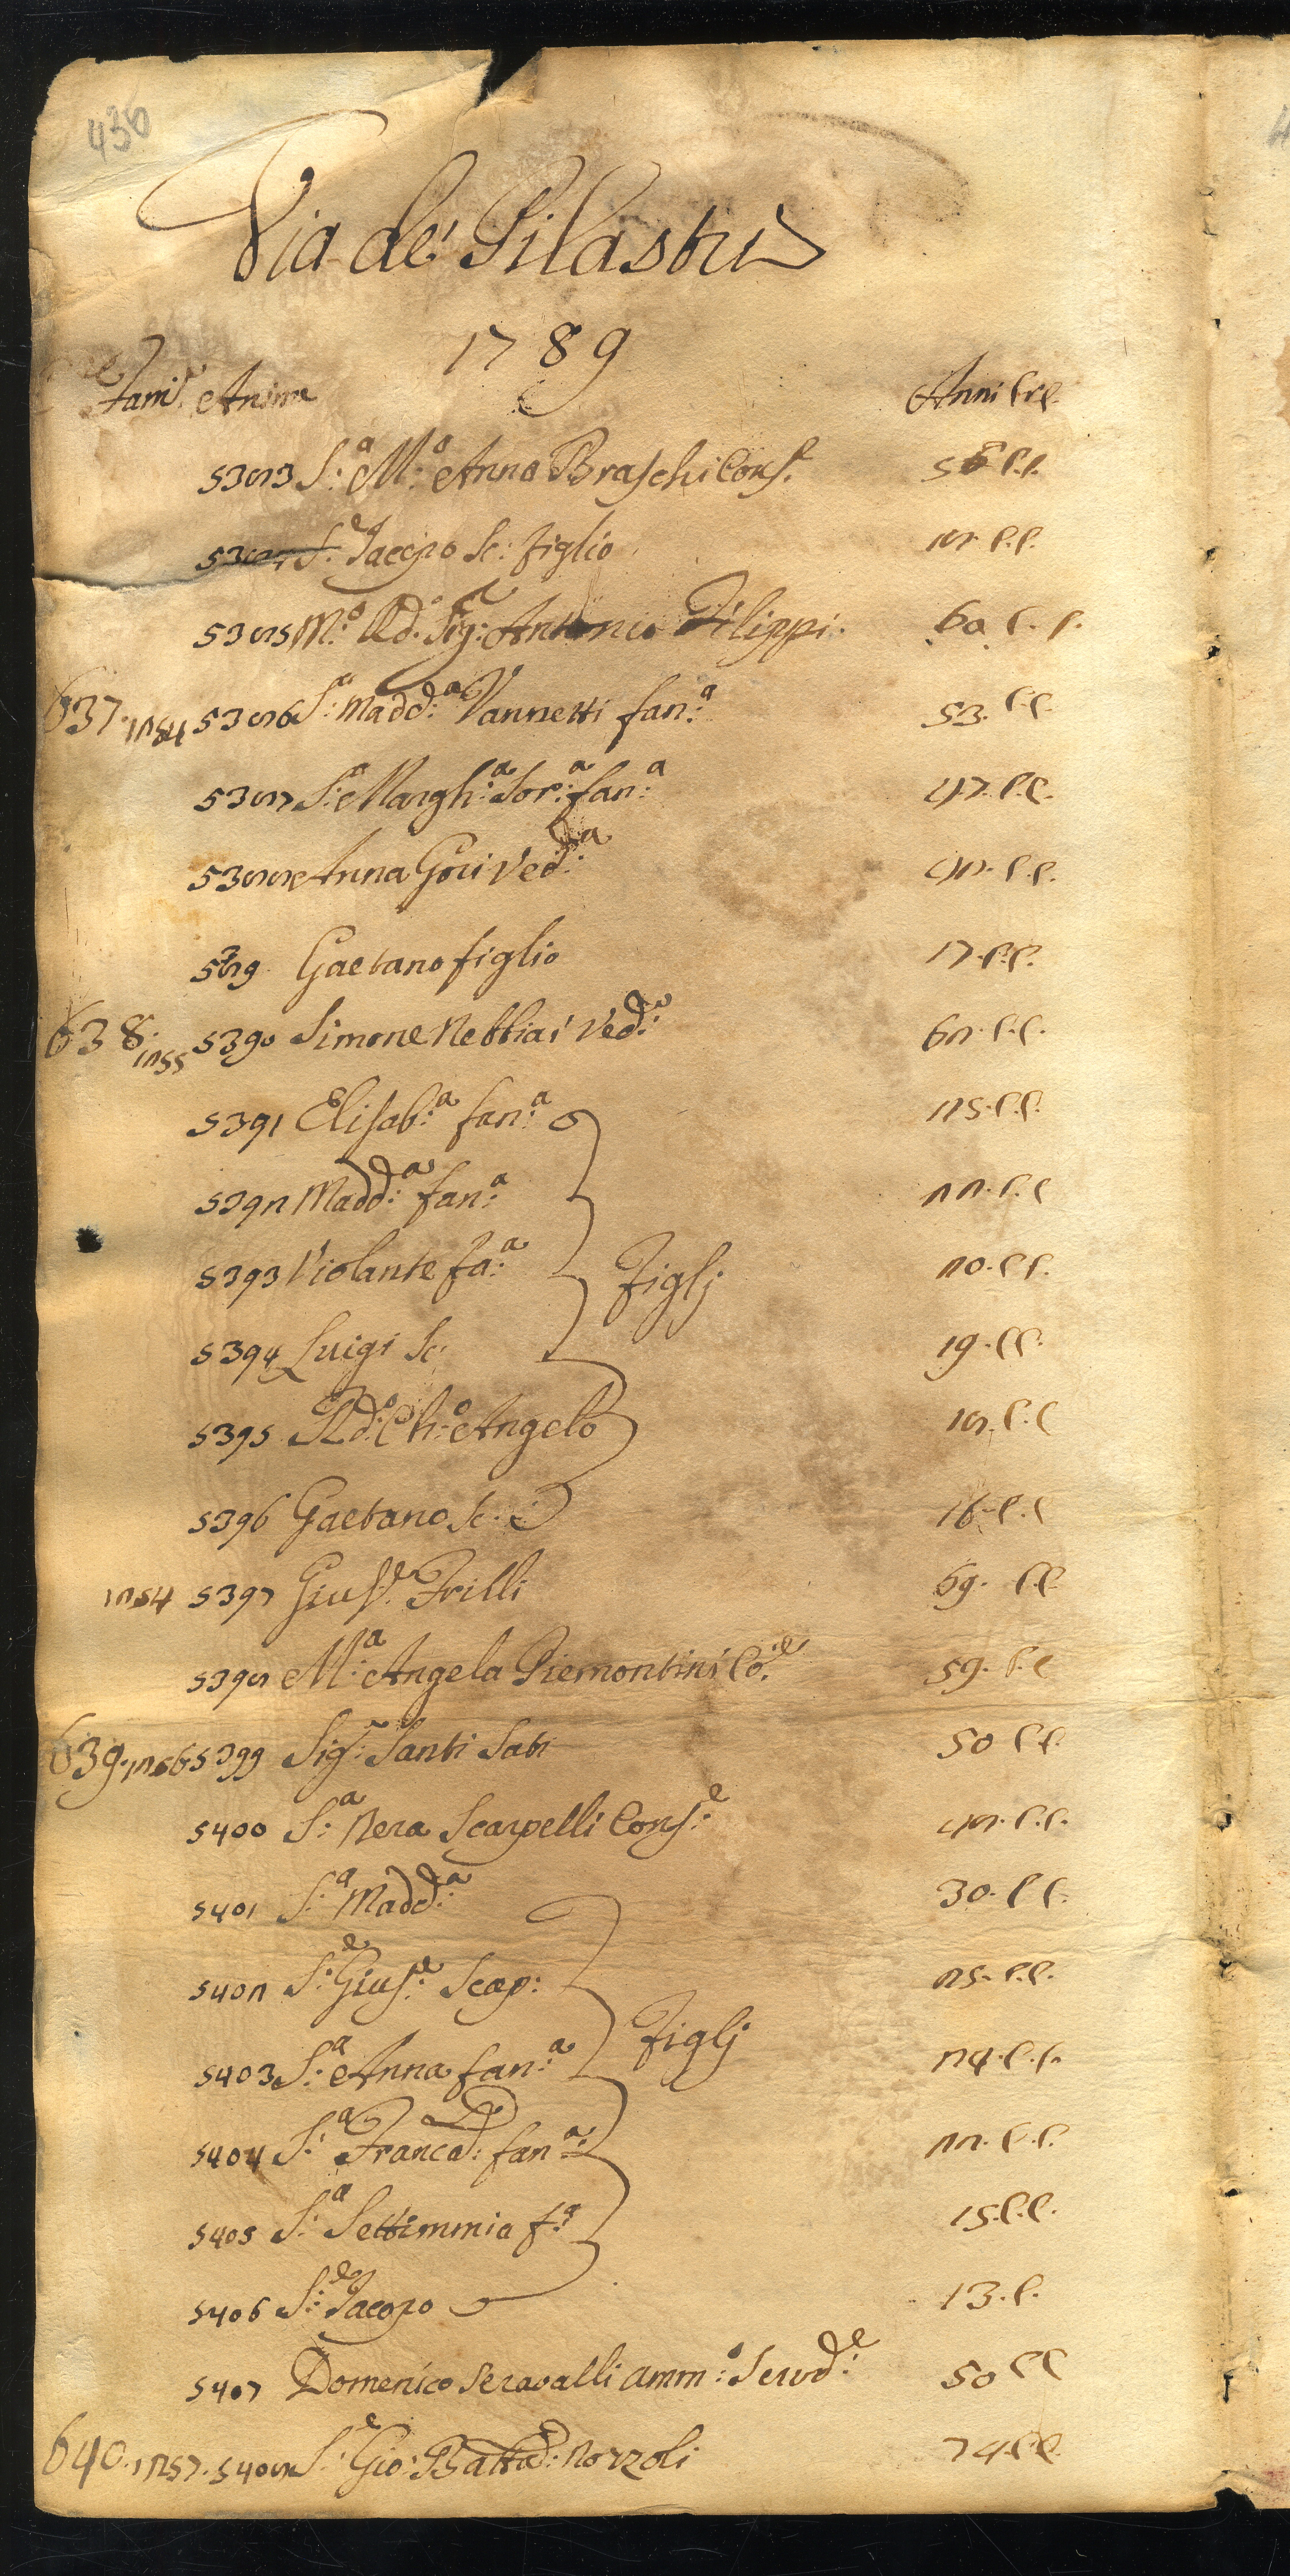 430
Via de' Pilastri
1789
Fam.e Anime Anni
5383 S.a M.a Anna Braschi Cons.e 58 C.C.
5384 S.e Jacopo Sc: figlio 28. C.C.
5385 M.o Rd. Sig.e Antonio Filippi. 60. C. C.
637. 1254 5386 S.a Madd.a Vannetti fan.a 53. C.C.
5387 S.a Margh.a Sor.a fan.a 47. C.C.
5388 Anna Gori Ved.a 42. C.C.
5389. Gaetano figlio 17. C.C.
638. 1255 5390 Simone Nebbiai Ved.o 62. C.C.
5391 Elisab.a fan.a 25. C.C.
5392 Madd.a fan.a 22. C.C
5393 Violante fa.a 20. C.C.
Figlj
5394 Luigi Sc: 19. C.C.
5395 Rd.o Ch.o Angelo 18. C.C
5396 Gaetano Sc: 16. C.C
1254 5397 Gius.e Frilli 69. C.C.
5398 M.a Angela Piemontini Co.e 59. C.C
639. 1256 5399 Sig.r Santi Sati 50 C.C.
5400 S.a Nera Scarpelli Cons.e 48. C.C.
5401 S.a Madd.a 30. C C.
5402 S.e Gius.e Scap: 25. C.C.
Figlj
5403 S.a Anna fan.a 24. C.C.
5404 S.a Franca: fan.a: 22. C.C.
5405 S.a Settimmia f.a 15. C.C.
5406 S.e Jacopo 13. C.
5407 Domenico Seravalli Amm.o Servd.e 50 C C
640. 1257. 5408 S.e Gio: Batta: Nozzoli 74. C.C.